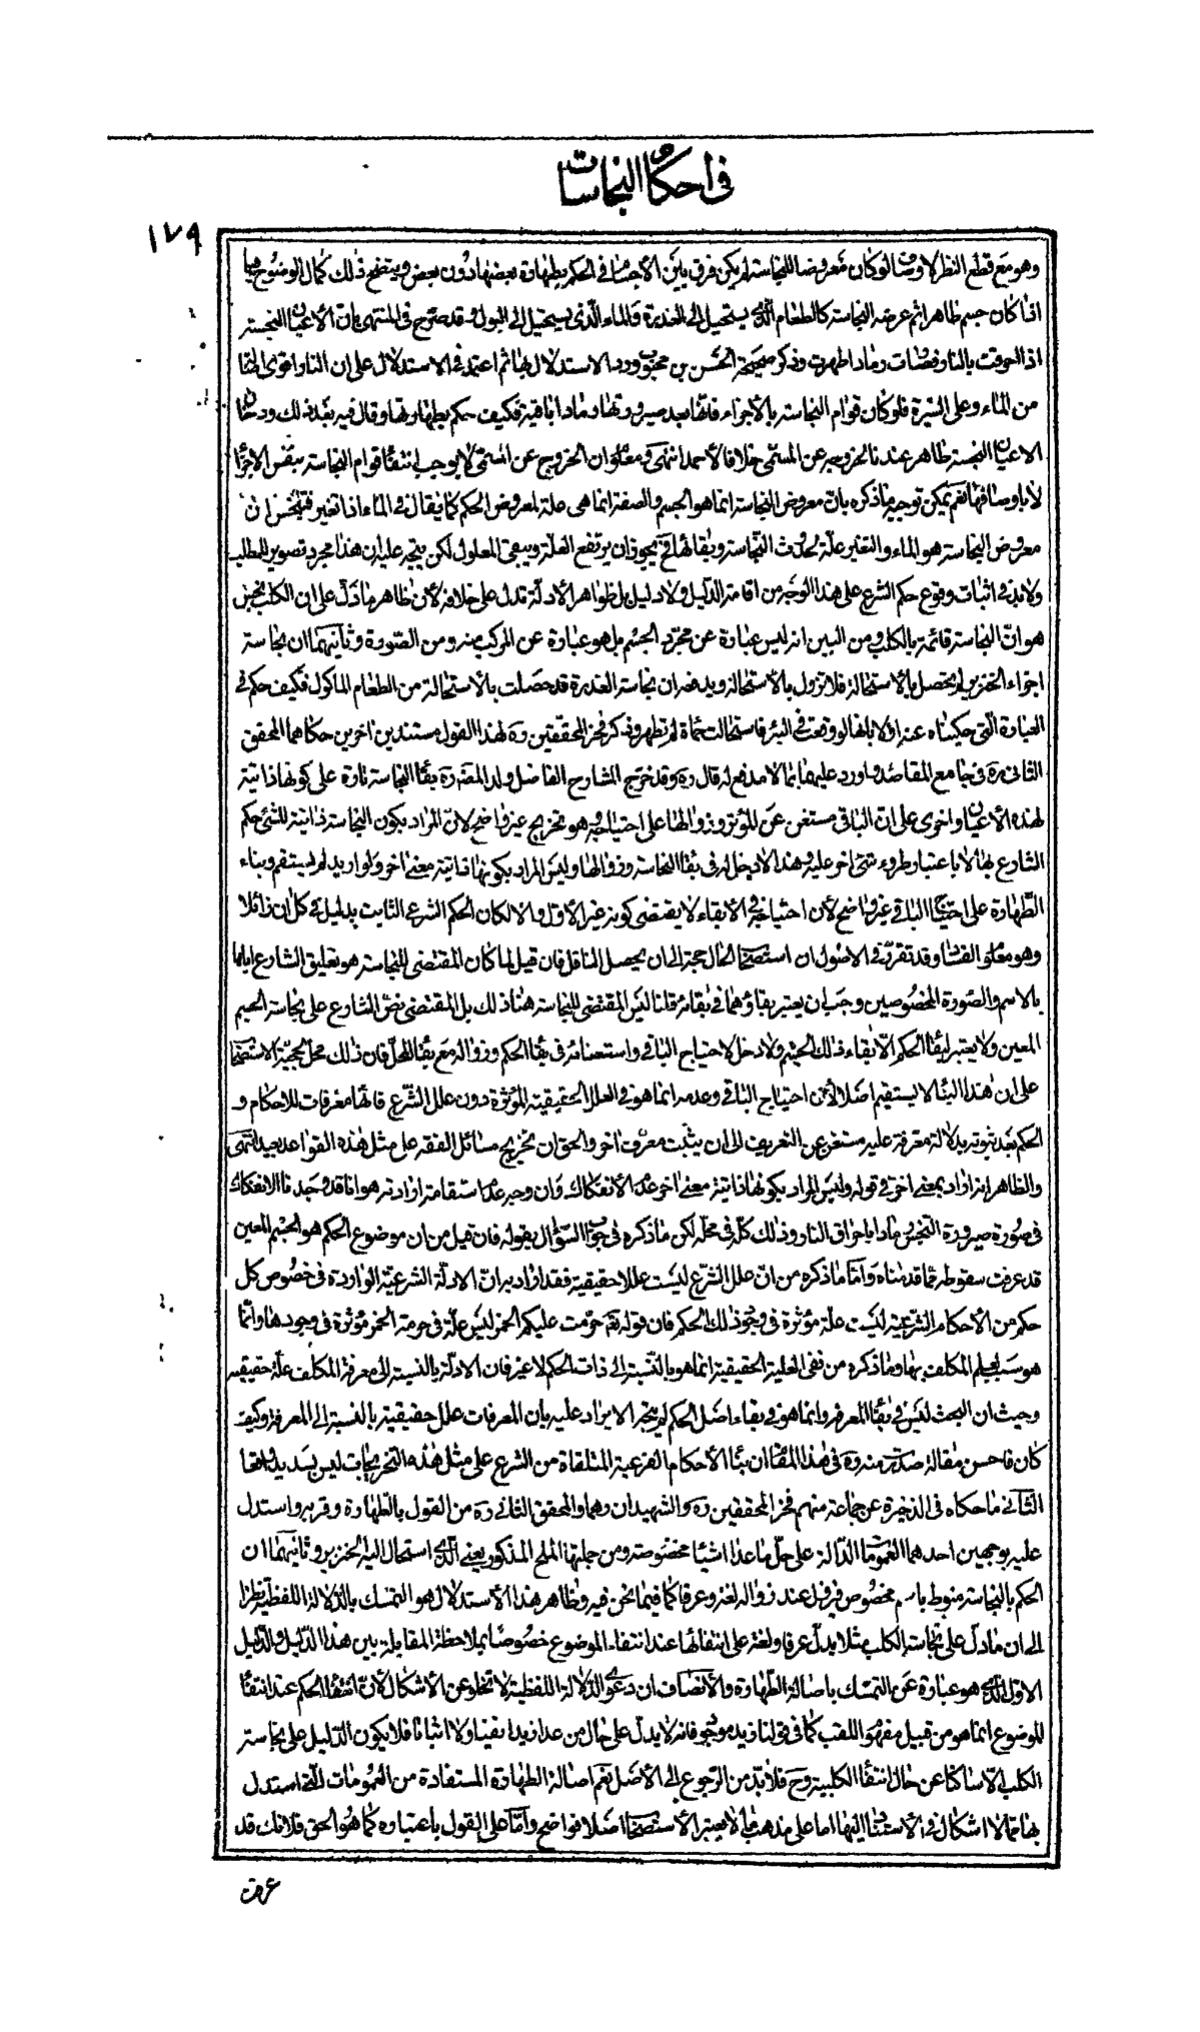 في احكام النجاسات
١٧٩
وهو مع قطع النظر لاوصاف لو كان معروضا للنجاسة لم يكن فرق بين الأجسام في الحكم بطهارة بعضها دون بعض ويتضح ذلك كمال الوضوح فيما
اذا كان جسم طاهر اثم عرضه النجاسة كالطعام الذي يستحيل الى العذيرة والماء الذي يستحيل الى البول وقد صرح في المنتهى بان الأعيان النجسة
اذا احرقت بالنار فصارت رمادا طهرت وذكر صحيحة الحسن بن محبوب ورد الاستدلال بها ثم اعتمد في الاستدلال على ان النار اقوى احالة
من الماء وعلى السيرة فلو كان قوام النجاسة بالاجزاء فانها بعد صيرورتها رمادا باقية فكيف حكم بطهارتها وقال فيه بعد ذلك ودخان
الاعيان النجسة طاهر عندنا لخروجه عن المسمى خلافا لأحمد انتهى ومعلوم ان الخروج عن المسمى لا يوجب انتفاء قوام النجاسة بنفس الاجزاء
لا باوصافها نعم يمكن توجيه ما ذكره بان معروض النجاسة انما هو الجسم والصفة انما هي علة لمعروض الحكم كما يقال في الماء اذا تغير فتنجس ان
معروض النجاسة هو الماء والتغير علة لحدوث النجاسة وبقائها فح يجوز ان يرتفع العلة ويبقى المعلول لكن يتجه عليه ان هذا مجرد تصوير للمطلب
ولا بد في اثبات وقوع حكم الشرع على هذا الوجه من اقامة الدليل ولا دليل بل ظواهر الأدلة تدل على خلافه لأن ظاهر ما دل على ان الكلب نجس
هو ان النجاسة قائمة بالكلب ومن البين انه ليس عبارة عن مجرد الجسم بل هو عبارة عن المركب منه ومن الصورة وثانيهما ان نجاسة
اجزاء الخنزير لم يحصل بالاستحالة فلا تزول بالأستحالة ويدفعه ان نجاسة العذرة قد حصلت بالأستحالة من الطعام الماكول فكيف حكم في
العبارة التي حكيناه عنه اولا بانها لو وقعت في البئر فاستحالت حماة لم تطهر وذكر فخر المحققين ره لهذا القول مستندين اخرين حكاهما المحقق
الثاني ره في جامع المقاصد واورد عليهما بما لا مدفع له قال ره وقد خرج الشارح الفاضل ولد المص ره بقاء النجاسة تارة على كونها ذاتية
لهذه الأعيان واخرى على ان الباقي مستغن عن المؤثر وزوالها على احتياجه وهو تخريج غير واضح لان المراد بكون النجاسة ذاتية للشئ حكم
الشارع بها لا باعتبار طروء شئ اخر عليه وهذا لا دخل له في بقاء النجاسة وزوالها وليس المراد بكونها ذاتية معنى اخر ولو اريد لم يستقم وبناء
الطهارة على احتياج الباقي غير واضح لأن احتياجه في الابقاء لا يقتضى كونه غير الأول والا لكان الحكم الشرعي الثابت بدليل في كل ان زائلا
وهو معلوم الفساد وقد تقرر في الاصول ان استصحاب الحال حجة الى ان يحصل الناقل فان قيل لما كان المقتضى للنجاسة هو تعليق الشارع اياها
بالاسم والصورة المخصوصين وجب ان يعتبر بقاؤهما في بقائه قلنا ليس المقتضى للنجاسة هنا ذلك بل المقتضى نص الشارع على نجاسة الجسم
المعين ولا يعتبر لبقاء الحكم الا بقاء ذلك الجسم ولا دخل لاحتياج الباقي واستغنائه في بقاء الحكم وزواله مع بقاء المحل فان ذلك محل لحجية الاستصحاب
على ان هذا البناء لا يستقيم اصلا لأن احتياج الباقي وعدمه انما هو في العلل الحقيقية المؤثرة دون علل الشرع فانها معرفات للاحكام و
الحكم بعد ثبوته بدلالة معرفة عليه مستغن عن التعريف الى ان يثبت معرف اخر والحق ان تخريج مسائل الفقه على مثل هذه القواعد بعيد انتهى
والظاهر انه اراد بمعنى اخر في قوله وليس المراد بكونها ذاتية معنى اخر عدم الأنفكاك وان وجه عدم استقامة ارادته هو انا قد وجدنا الانفكاك
في صورة صيرورة النجس رمادا باحراق النار وذلك كله في محله لكن ما ذكره في جواب السؤال بقوله فان قيل من ان موضوع الحكم هو الجسم المعين
قد عرفت سقوطه مما قدمناه واما ما ذكره من ان علل الشرع ليست عللا حقيقية فقد اراد به ان الادلة الشرعية الواردة في خصوص كل
حكم من الأحكام الشرعية ليست علة مؤثرة في وجود ذلك الحكم فان قوله تعم حرمت عليكم الخمر ليس علة في حرمة الخمر مؤثرة في وجودها وانما
هو سبب لعلم المكلف بها وما ذكره من نفى العلية الحقيقية انما هو بالنسبة الى ذات الحكم لا غير فان الادلة بالنسبة الى معرفة المكلف علة حقيقية
وحيث ان البحث ليس في بقاء المعرفة وانما هو في بقاء اصل الحكم لم يتجه الايراد عليه بان المعرفات علل حقيقية بالنسبة الى المعرفة وكيف
كان فاحسن مقالة صدرت منه ره في هذا المقام ان بناء الأحكام الفرعية المتلقاة من الشرع على مثل هذه التخريجات ليس بسديد
الثاني ما حكاه في الذخيرة عن جماعة منهم فخر المحققين ره والشهيدان وهما والمحقق الثاني ره من القول بالطهارة وقربه واستدل
عليه بوجهين احدهما العمومات الدالة على حل ما عدا اشياء مخصوصة ومن جملتها الملح المذكور يعني الذي استحال اليه الخنزير وثانيهما ان
الحكم بالنجاسة منوط باسم مخصوص فيزول عند زواله لغة وعرفا كما فيما نحن فيه وظاهر هذا الأستدلال هو التمسك بالدلالة اللفظية نظرا
الى ان ما دل على نجاسة الكلب مثلا يدل عرفا ولغة على انتفائها عند انتفاء الموضوع خصوصا بملاحظة المقابلة بين هذا الدليل والدليل
الاول الذي هو عبارة عن التمسك باصالة الطهارة والأنصاف ان دعوى الدلالة اللفظية لا تخلو عن الأشكال لأن انتفاء الحكم عند انتفاء
الموضوع انما هو من قبيل مفهوم اللقب كما في قولنا زيد موجود فانه لا يدل على حال من عدا زيد نفيا ولا اثباتا فلا يكون الدليل على نجاسة
الكلب الا ساكتا عن حال انتفاء الكلبية وح فلا بد من الرجوع الى الأصل نعم اصالة الطهارة المستفادة من العمومات التي استدل
بها مما لا اشكال في الأستناد اليها اما على مذهب من لا يعتبر الأستصحاب اصلا فواضح واما على القول باعتباره كما هو الحق فلانك قد
عرفت